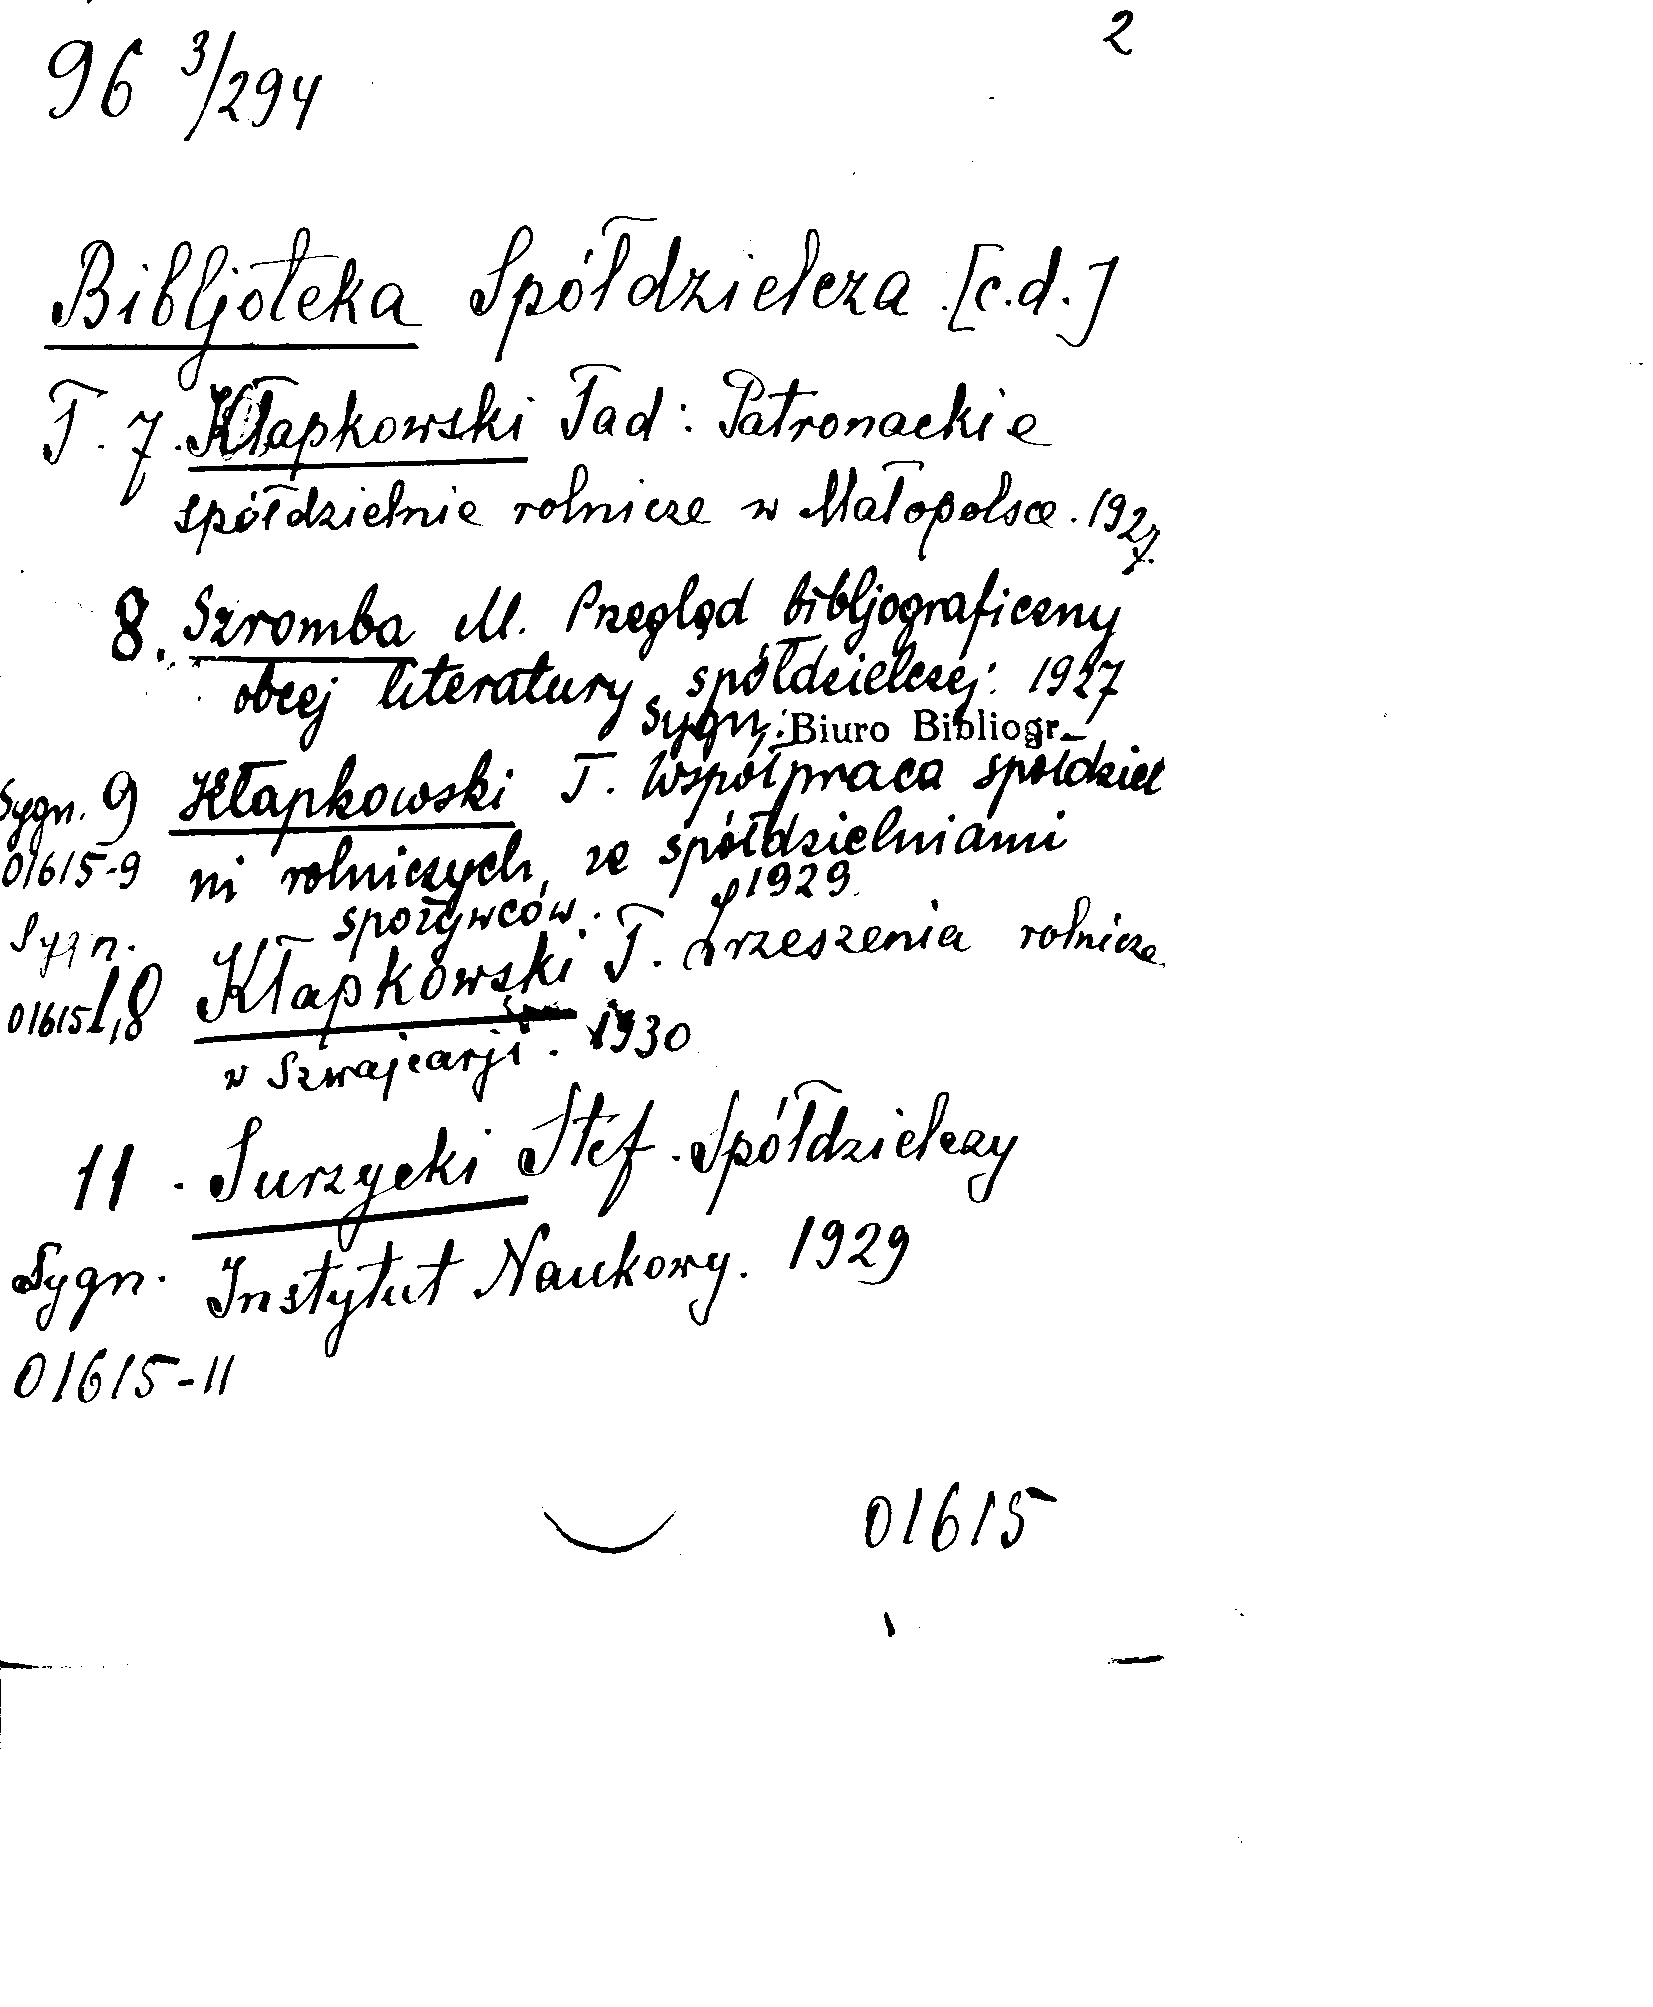 2
96 3/294
Bibljoteka Spółdzielcza [c.d.]
T. 7. Kłapkowski Tad: Patronackie
spółdzielnie rolnicze w Małopolsce. 1927.
8. Szromba M. Przegląd bibljograficzny
obcej literatury spółdzielczej: 1927
Sygn.: Biuro Bibliogr.
Sygn. 9 Kłapkowski T. Współpraca spółdziel
01615-9 ni rolniczych, ze spółdzielniami
spożywców. 1929.
Sygn. Kłapkowski T. Zrzeszenia rolnicze
01615
w Szwajcarji. 1930
11. Surzycki Stef. Spółdzielczy
Sygn. Instytut Naukowy. 1929
01615-11
01615